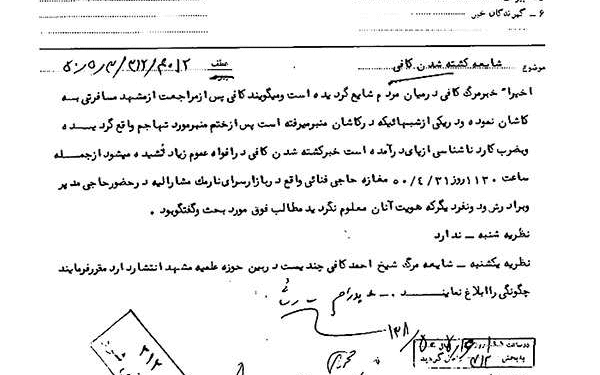 ۶ ـ گیرندگان خبر
موضوع شایعه کشته شدن کافی عطف
اخیرا" خبرمرگ کافی درمیان مردم شایع گردیده است ومیگویند کافی پس ازمراجعت ازمشهد مسافرتی به
کاشان نموده ودریکی ازشبهائیکه درکاشان منبرمیرفته است پس ازختم منبرمورد تهاجم واقع گردیده
وبضرب کارد ناشناسی ازپای درآمده است خبرکشته شدن کافی درافواه عموم زیاد شنیده میشود ازجمله
ساعت ۱۱۳۰ روز ۵۰/۴/۳۱ مغازه حاجی فنائی واقع دربازارسرای نارمک مشارالیه درحضورحاجی مدیر
وبرادرش ود ونفردیگرکه هویت آنان معلوم نگردید مطالب فوق مورد بحث وگفتگوبود .
نظریه شنبه ـ ندارد
نظریه یکشنبه ـ شایعه مرگ شیخ احمد کافی چندیست دربین حوزه علمیه مشهد انتشاردارد مقررفرمایند
چگونگی راابلاغ نمایند .
۳۱۲